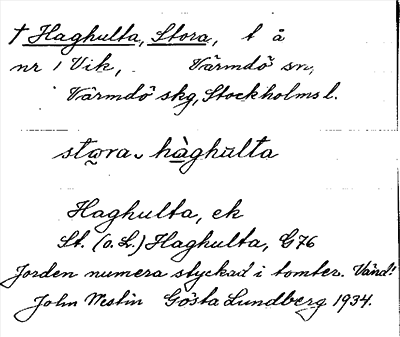 † Haghulta, Stora, t å
nr 1 Vik, Värmdö sn,
Värmdö skg, Stockholms l.
stωra hàghulta
Haghulta, ek
St. (o. L.) Haghulta, G76
Jorden numera styckad i tomter. Vänd!
John Nestin Gösta Lundberg 1934.